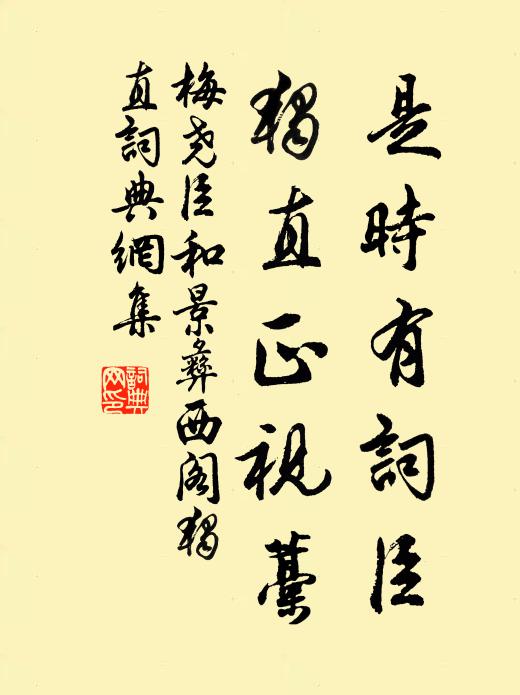 是時有詞臣
獨直正視藁
梅尧臣和景彝西阁獨
直詞典網集
詞典
网印